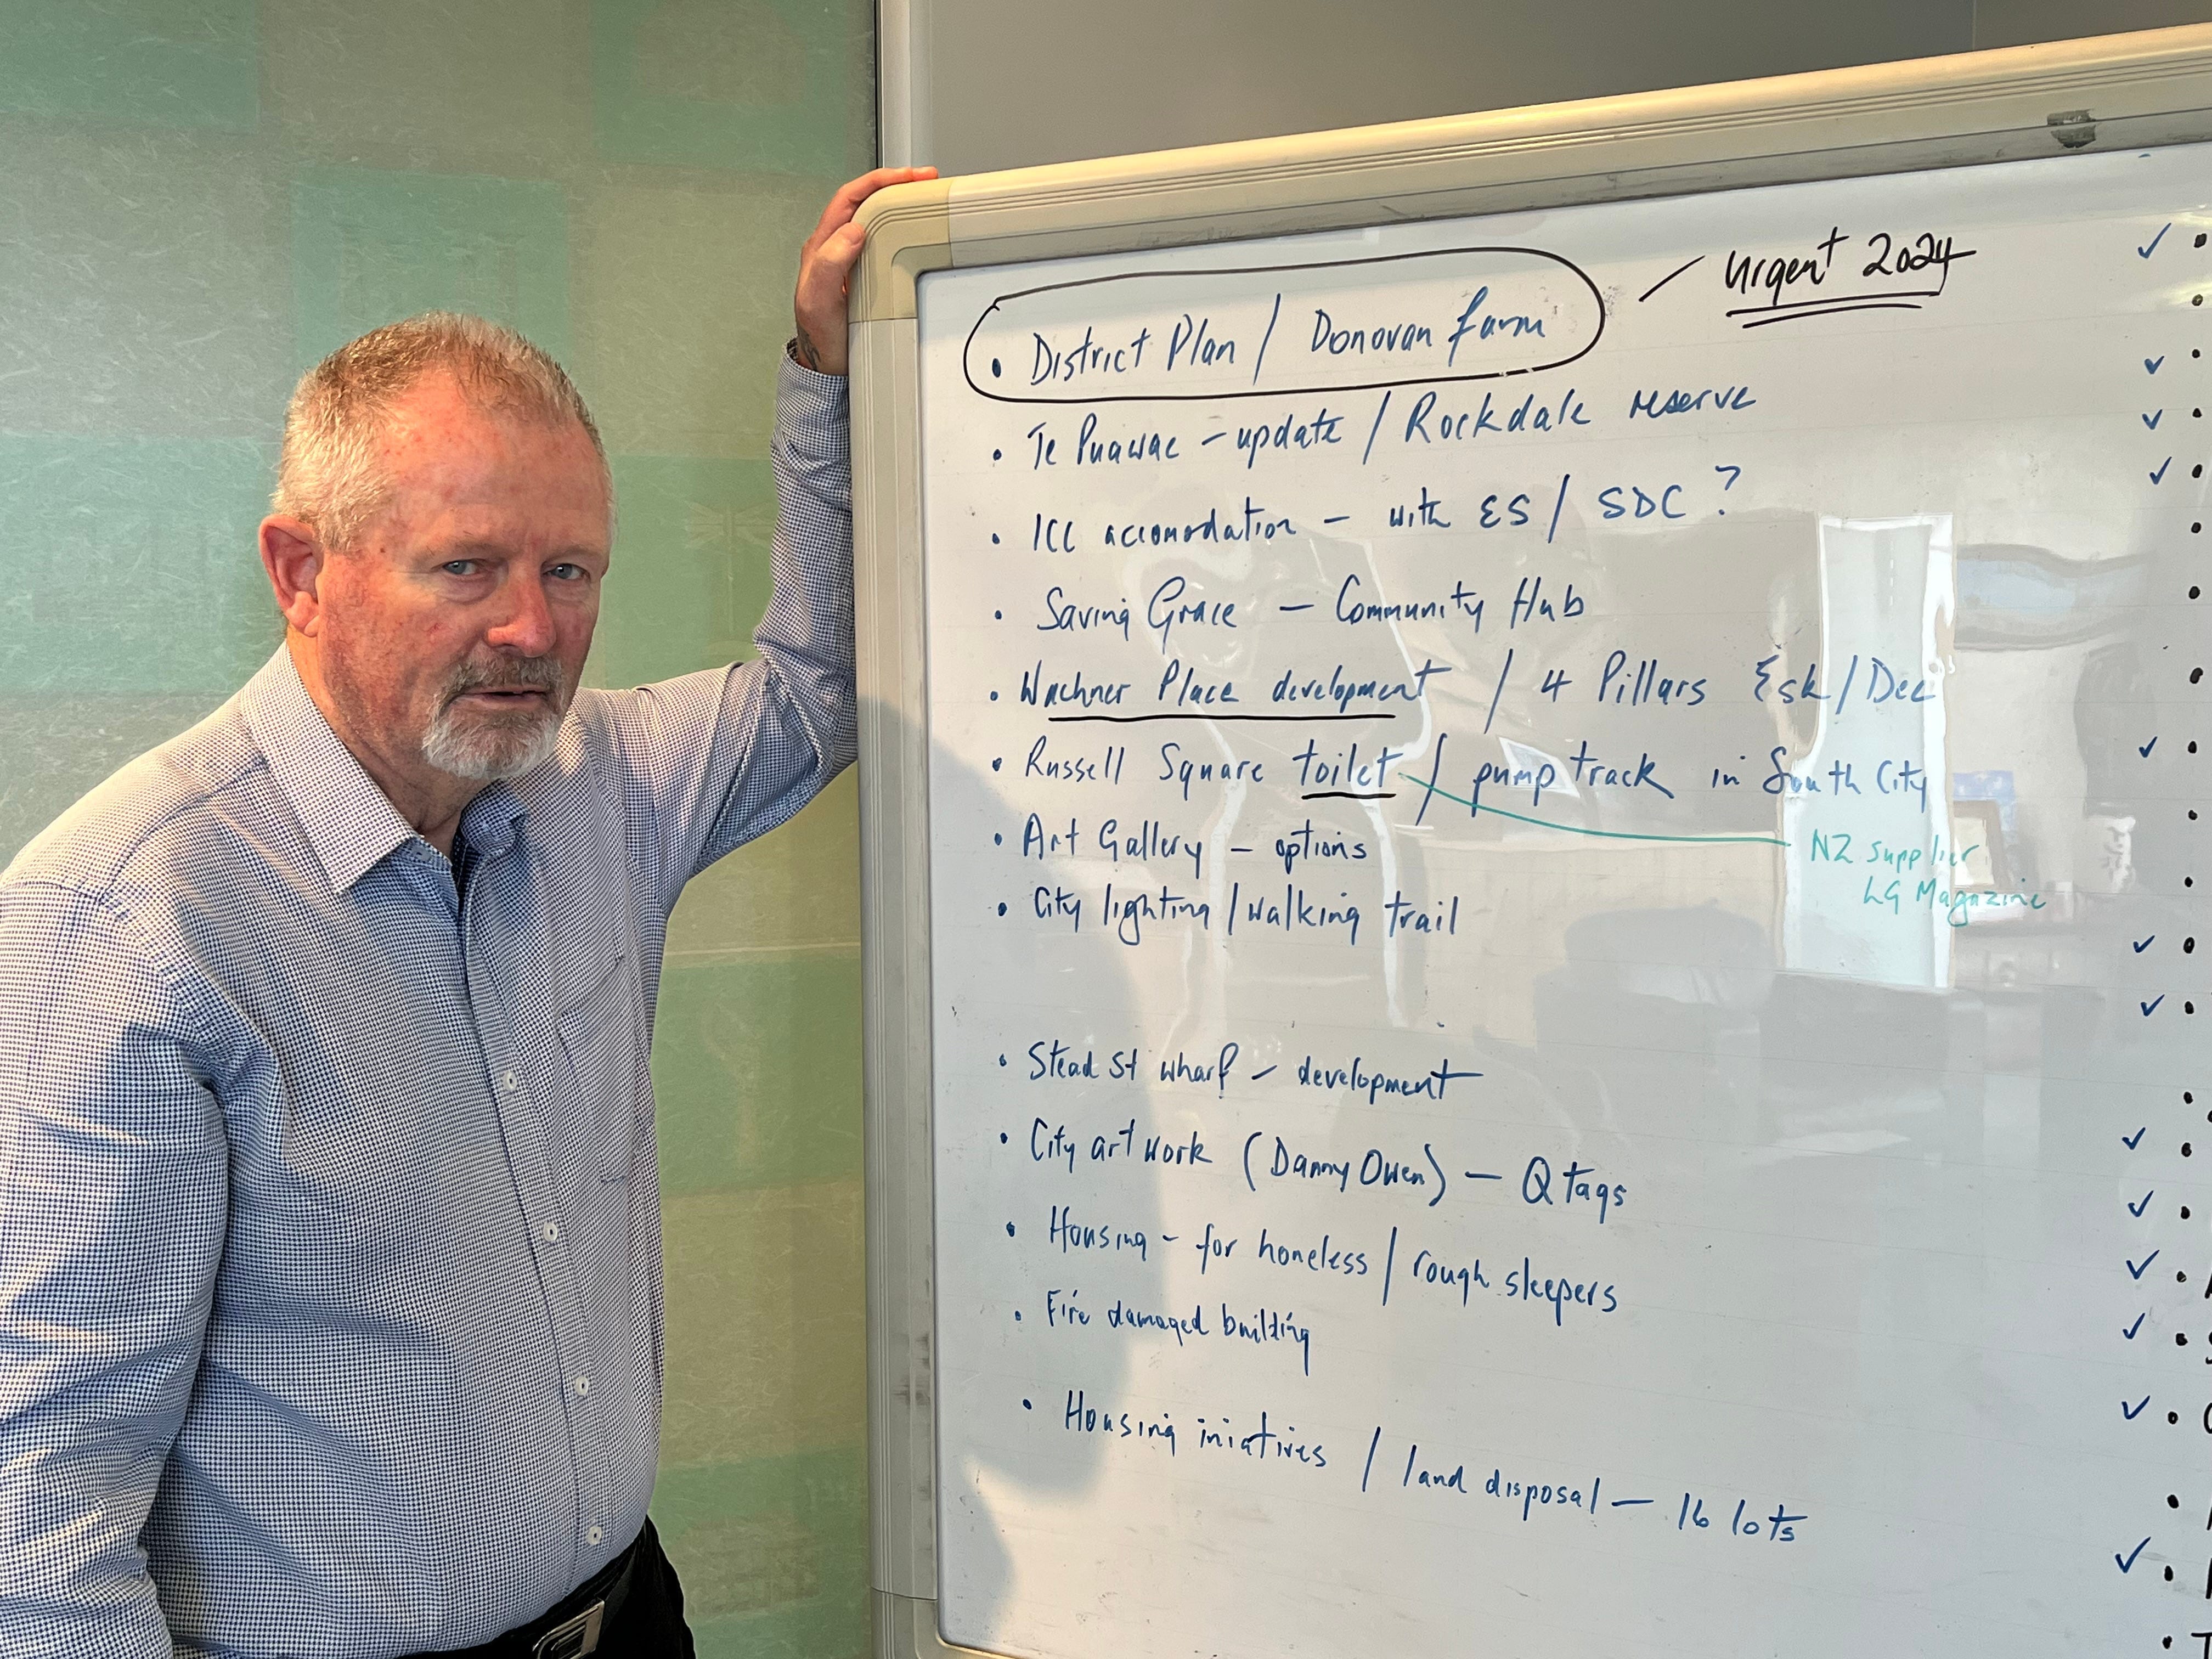 • District Plan / Donovan farm — Urgent 2024
• Te Puawae - update / Rockdale reserve
• ICC accomodation - with ES / SDC ?
• Saving Grace - Community Hub
• Wachner Place development / 4 Pillars Esk/Dee
• Russell Square toilet / pump track in South City
NZ supplier
LG Magazine
• Art Gallery - options
• City lighting / walking trail
• Stead St wharf - development
• City art work (Danny Owen) - Q tags
• Housing - for homeless / rough sleepers
• Fire damaged building
• Housing iniatives / land disposal - 16 lots